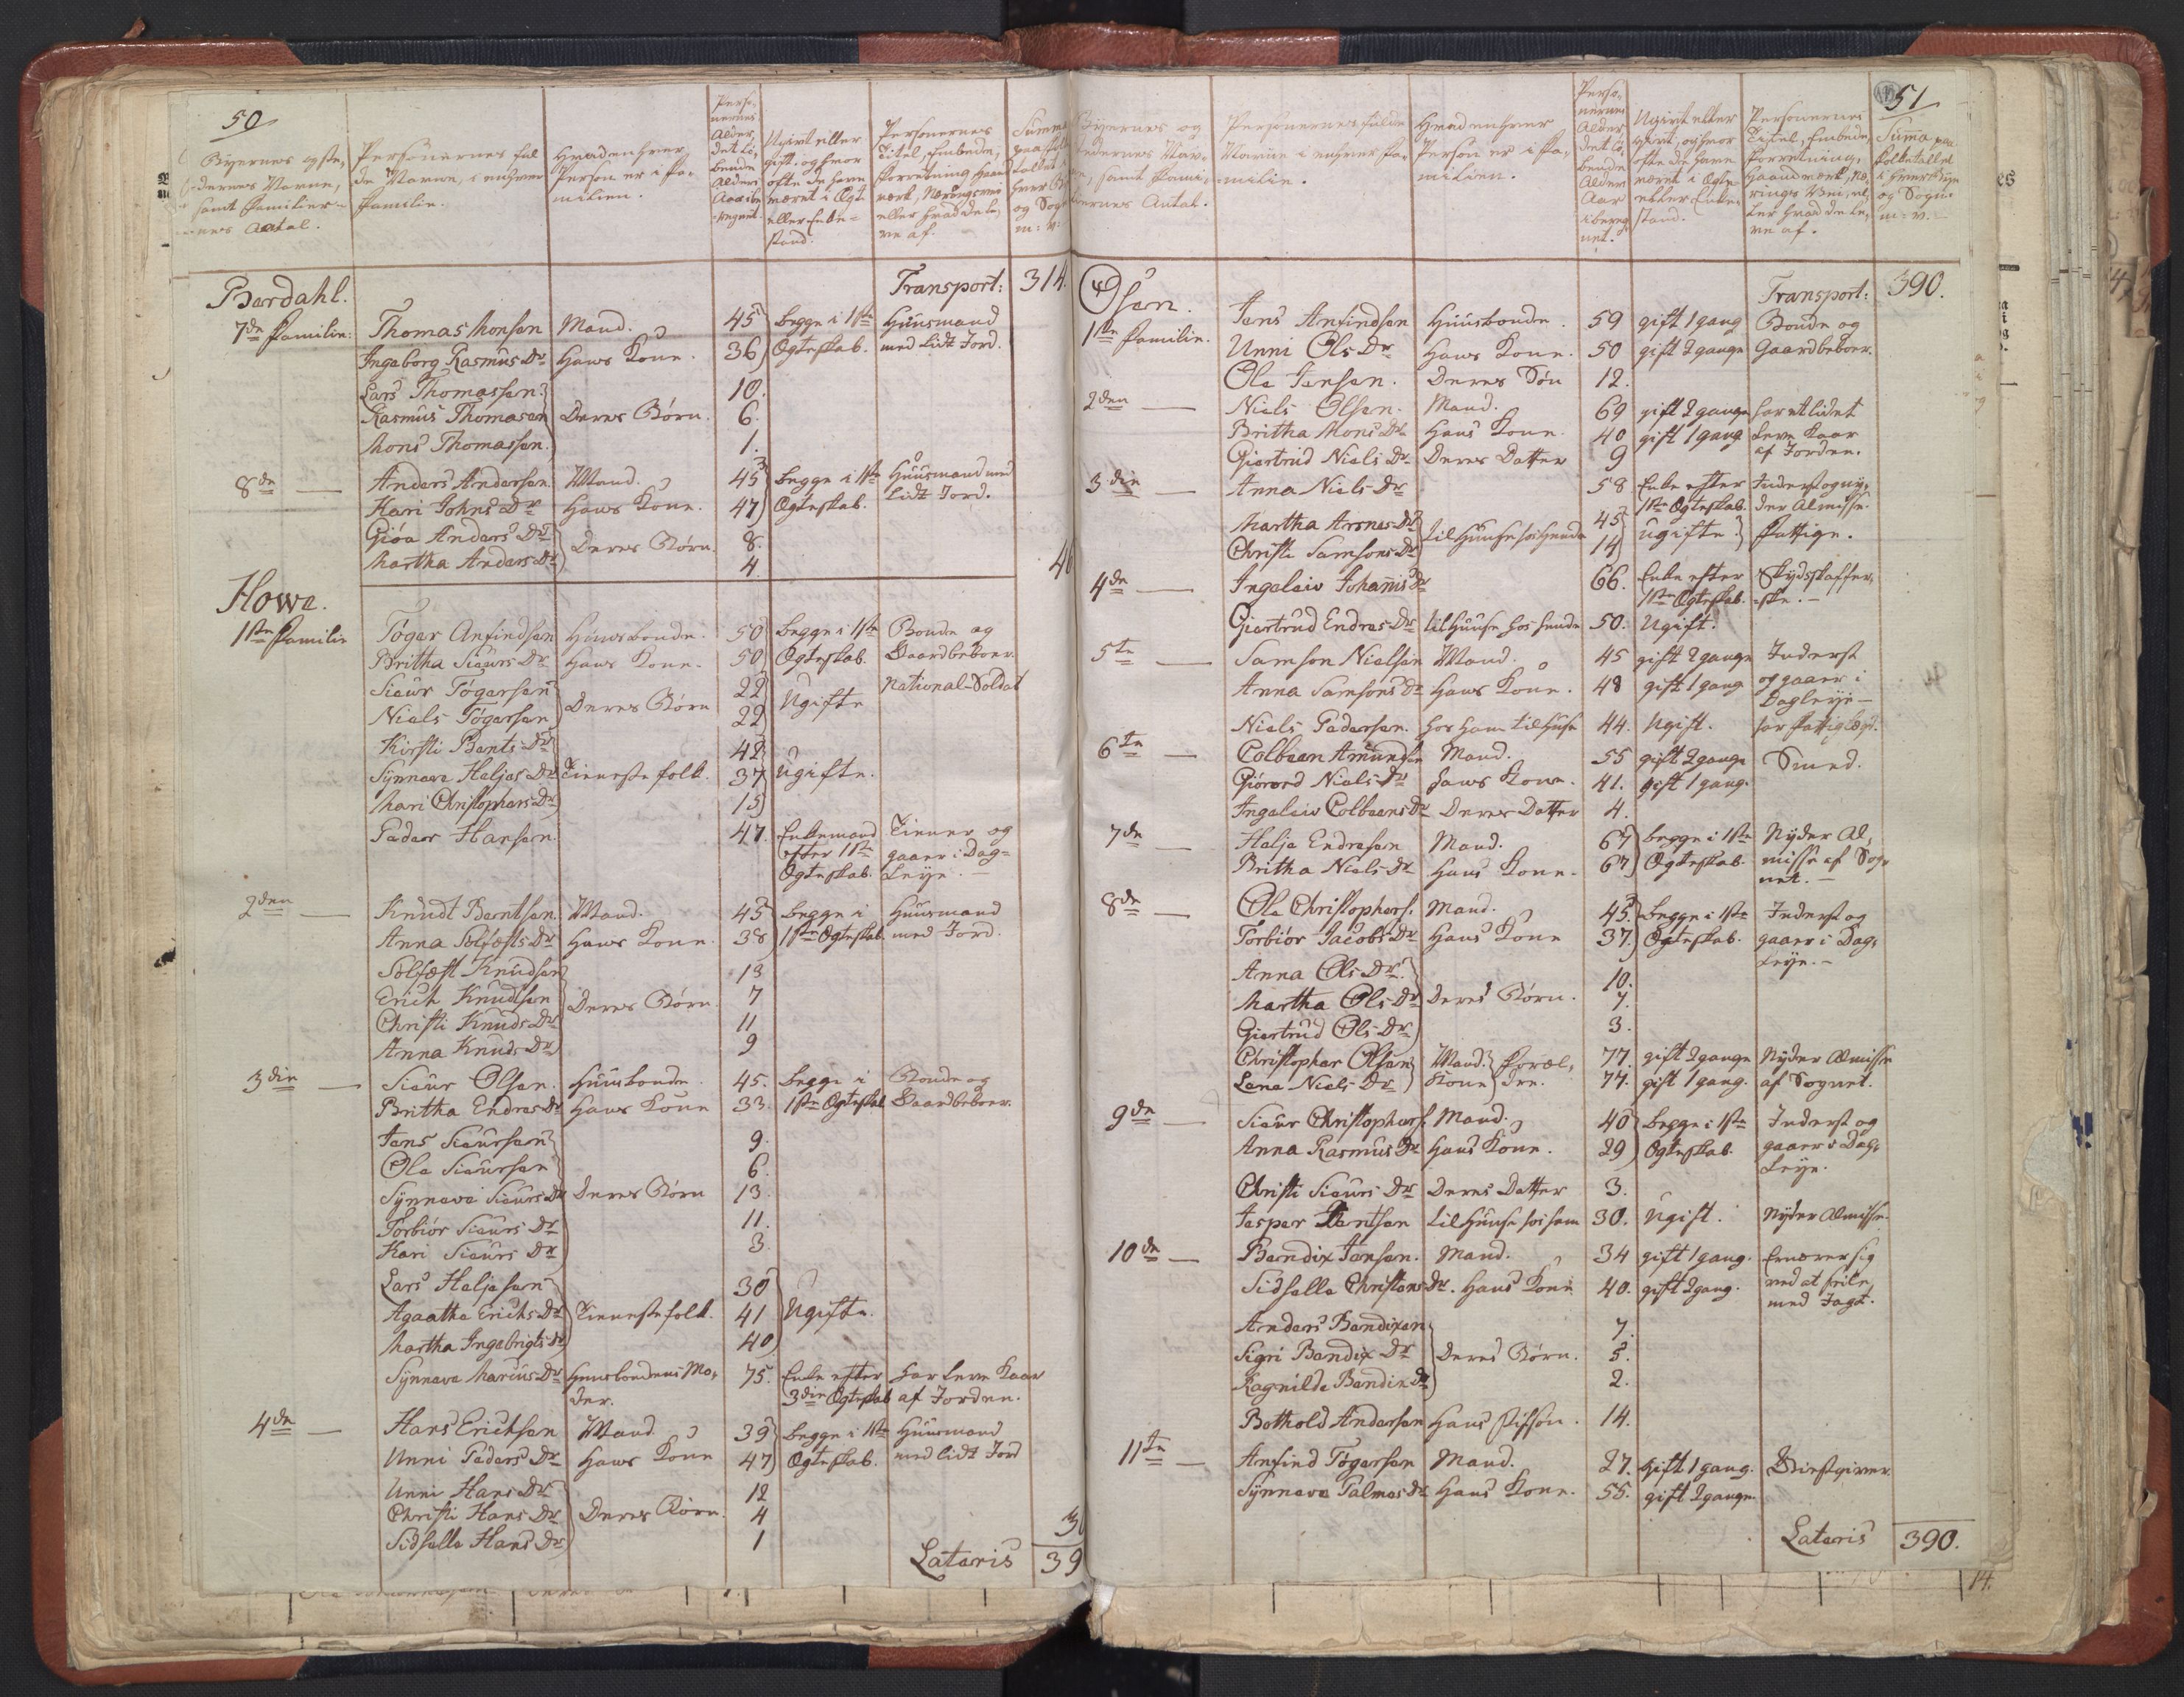 50
Byernes og Ste-
dernes Navne,
samt Familier-
nes Antal.
Personernes ful
de Navne, i enhver
Familie.
Hvad enhver
Person er i Fa-
milien.
Perso-
nernes
Alder,
det Lö-
bende
Alders
Aar ibe-
regnet.
Ugivt eller
gift, og hvor
ofte de have
været i Ægte
eller Enke-
stand.
Personernes
Titel, Embede,
Forretning, Haand
værk, Næringsvei
eller hvad de le-
ve af.
Summa
paa Folke
Tallet i
hver By
og Sogn
m: v:
Bardahl. Transport: 314.
7de Familie: Thomas Monsen Mand. 45 begge i 1ste Huusmand
Ingeborg Rasmus Dr Hans Kone. 36 Ægteskab. med lidt Jord.
Lars Thomassen 10.
Rasmus Thomasen Deres Börn. 6.
Mons Thomassen. 1.
8de — Anders Andersen Mand. 45 begge i 1ste Huusmand med
Kari Johns Dr Hans Kone. 47 Ægteskab. Lidt Jord.
Giöa Anders Dr Deres Börn. 8.
Martha Anders Dr 4.
Howe.
1ste Familie Töger Anfindsen Huusbonde. 50 begge i 1ste Bonde og
Britha Sieurs Dr Hans Kone. 50 Ægteskab. Gaardbeboer.
Sieur Tögersen Deres Börn 22 Ugifte National-Soldat
Niels Tögersen 22
Kirsti Bents Dr 42
Synneve Heljes Dr Tienestefolk. 37 ugifte.
Mari Christophers Dr 15
Peder Hansen. 47. Enkemand Tiener og
efter 1ste gaaer i Dag-
Ægteskab. Leye. —
2den — Knudt Berntsen Mand. 45 begge i Huusmand
Anna Solfæsts Dr Hans Kone. 38 1ste Ægteskab. med Jord.
Solfæst Knudsen 13
Erich Knudsen Deres Börn. 7
Christi Knuds Dr 11
Anna Knuds Dr 9
3die — Sieur Olsen. Huusbonde. 45. begge i Bonde og
Britha Endres Dr Hans Kone 33. 1ste Ægteskab Gaardbeboer.
Jens Sieursen 9.
Ole Sieursen 6.
Synneve Sieurs Dr Deres Börn 13.
Torbiör Sieurs Dr 11.
Kari Sieurs Dr 3.
Lars Heljesen 30
Agaathe Erichs Dr Tienestefolk. 41 Ugifte.
Martha Ingebrigts Dr 40
Synneve Marcus Dr Huusbondens Mo- 75. Enke efter har leve Kaar
der. 3die Ægteskab af Jorden.
4de — Hans Erichsen Mand 39 begge i 1ste Huusmand
Unni Peders Dr Hans Kone 47 Ægteskab. med lidt Jord
Unni Hans Dr 12
Christi Hans Dr Deres Börn. 4
Sidselle Hans Dr 1
Lateris 39
51
Byernes og
Stedernes Nav-
ne, samt Fami-
liernes Antal.
Personernes fulde
Navne i enhver Fa-
milie.
Hvad enhver
Person er i Fa-
milien.
Perso-
nernes
Alder
det Lö-
bende
Alders
Aar
ibereg-
net.
Ugivt eller
givt, og hvor
ofte de have
været i Ægte
eller Enke-
stand.
Personernes
Titel, Embede,
Forretning,
Haandværk, Næ-
rings Vei, el-
ler hvad de le-
ve af.
Suma paa
Folketallet
i hver Bye
og Sogn.
m: v:
Osen. Transport: 390.
1ste Familie. Jens Anfindsen Huusbonde. 59 gift 1 gang Bonde og
Unni Ols Dr Hans Kone. 50 gift 2 gange Gaardbeboer.
Ole Jensen. Deres Sön 12.
2den — Niels Olsen. Mand. 69 gift 2 gange har et lidet
Britha Mons Dr Hans Kone. 40 gift 1 gang leve Kaar
Giertrud Niels Dr Deres Datter 9 af Jorden.
3die — Anna Niels Dr 58 Enke efter Inderst og ny-
1ste Ægteskab. der Almisse.
Martha Arnes Dr til Huuse hos hende 45 ugifte. Fattige.
Christi Samsons Dr 14
4de — Ingeleiv Johannis Dr 66. Enke efter Skydsskaffer-
1ste Ægteskab. ske. —
Giertrud Endres Dr til Huuse hos hende 50. Ugift.
5te — Samson Nielsen Mand. 45 gift 2 gange Inderst
Anna Samsons Dr Hans Kone. 48 gift 1 gang og gaaer i
Dagleye —
Niels Pedersen. hos ham til Huse 44. Ugift. har Fattiglægd.
6te — Colbeen Amundsen Mand. 55 gift 2 gange Smed.
Giörerd Niels Dr Hans Kone. 41. gift 1 gang.
Ingeleiv Colbeens Dr Deres Datter 4.
7de — Helje Endresen Mand. 67 begge i 1ste Nyder Al-
Britha Niels Dr Hans Kone. 67 Ægteskab. misse af Sog-
net. —
8de — Ole Christophers. Mand. 45. begge i 1ste Inderst og
Torbiör Jacobs Dr Hans Kone 37. Ægteskab. gaaer i Dag-
Leye. —
Anna Ols Dr 10.
Martha Ols Dr Deres Börn. 7.
Giertrud Ols Dr 3.
Christopher Olsen Mand. Foræl- 77. gift 2 gange Nyder Almisse
Lene Niels Dr Kone dre. 77. gift 1 gang. af Sognet.
9de — Sieur Christophers. Mand. 40 begge i 1ste Inderst og
Anna Rasmus Dr Hans Kone. 29 Ægteskab. gaaer i Dag-
Leye.
Christi Sieurs Dr Deres Datter 3.
Jesper Bentsen til Huuse hos ham 30. Ugift. Nyder Almisse.
10de — Bendix Jensen. Mand. 34 gift 1 gang. Ernærer sig
Sidselle Christens Dr. Hans Kone 40. gift 2 gang. ved at seile
med Jagt.
Anders Bendixen 7.
Sigri Bendix Dr Deres Börn. 5.
Ragnilde Bendix Dr 2.
Bothold Andersen Hans stifsön. 14.
11te — Anfind Tögersen Mand. 27. gift 1 gang. Giestgiver.
Synneve Palmes Dr Hans Kone. 55. gift 2 gange.
Lateris 390.